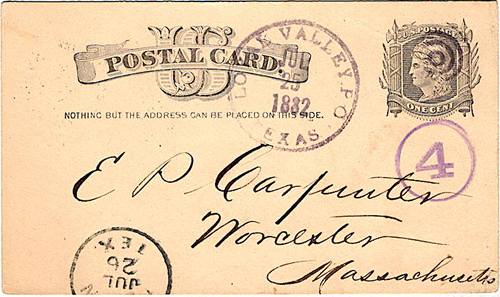 POSTAL CARD.
VALLEY P.O.
JUL
25
1882
TEXAS
U.S. POSTAGE
ONE CENT
NOTHING BUT THE ADDRESS CAN BE PLACED ON THIS SIDE.
4
E P Carpenter
Worcester
Massachusetts
JUL
26
TEX.